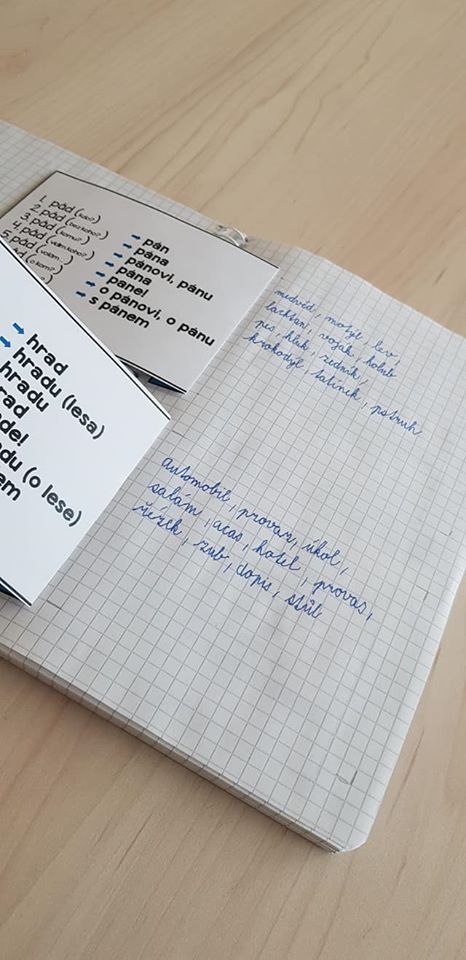 1. pád (kdo?)
2. pád (bez koho?)
3. pád (komu?)
4. pád (vidím koho?)
5. pád (volám
ád (o kom?)
→ pán
→ pána
→ pánovi, pánu
→ pána
→ pane!
→ o pánovi, o pánu
→ s pánem
→ hrad
→ hradu (lesa)
hradu
rad
de!
adu (o lese)
em
medvěd, motýl, lev,
lachtan, voják, holub
pes, kluk, zedník,
krokodýl, tatínek, pstruh
automobil, provaz, úkol,
salám, ocas, hotel, provas,
řízek, zub, dopis, stůl